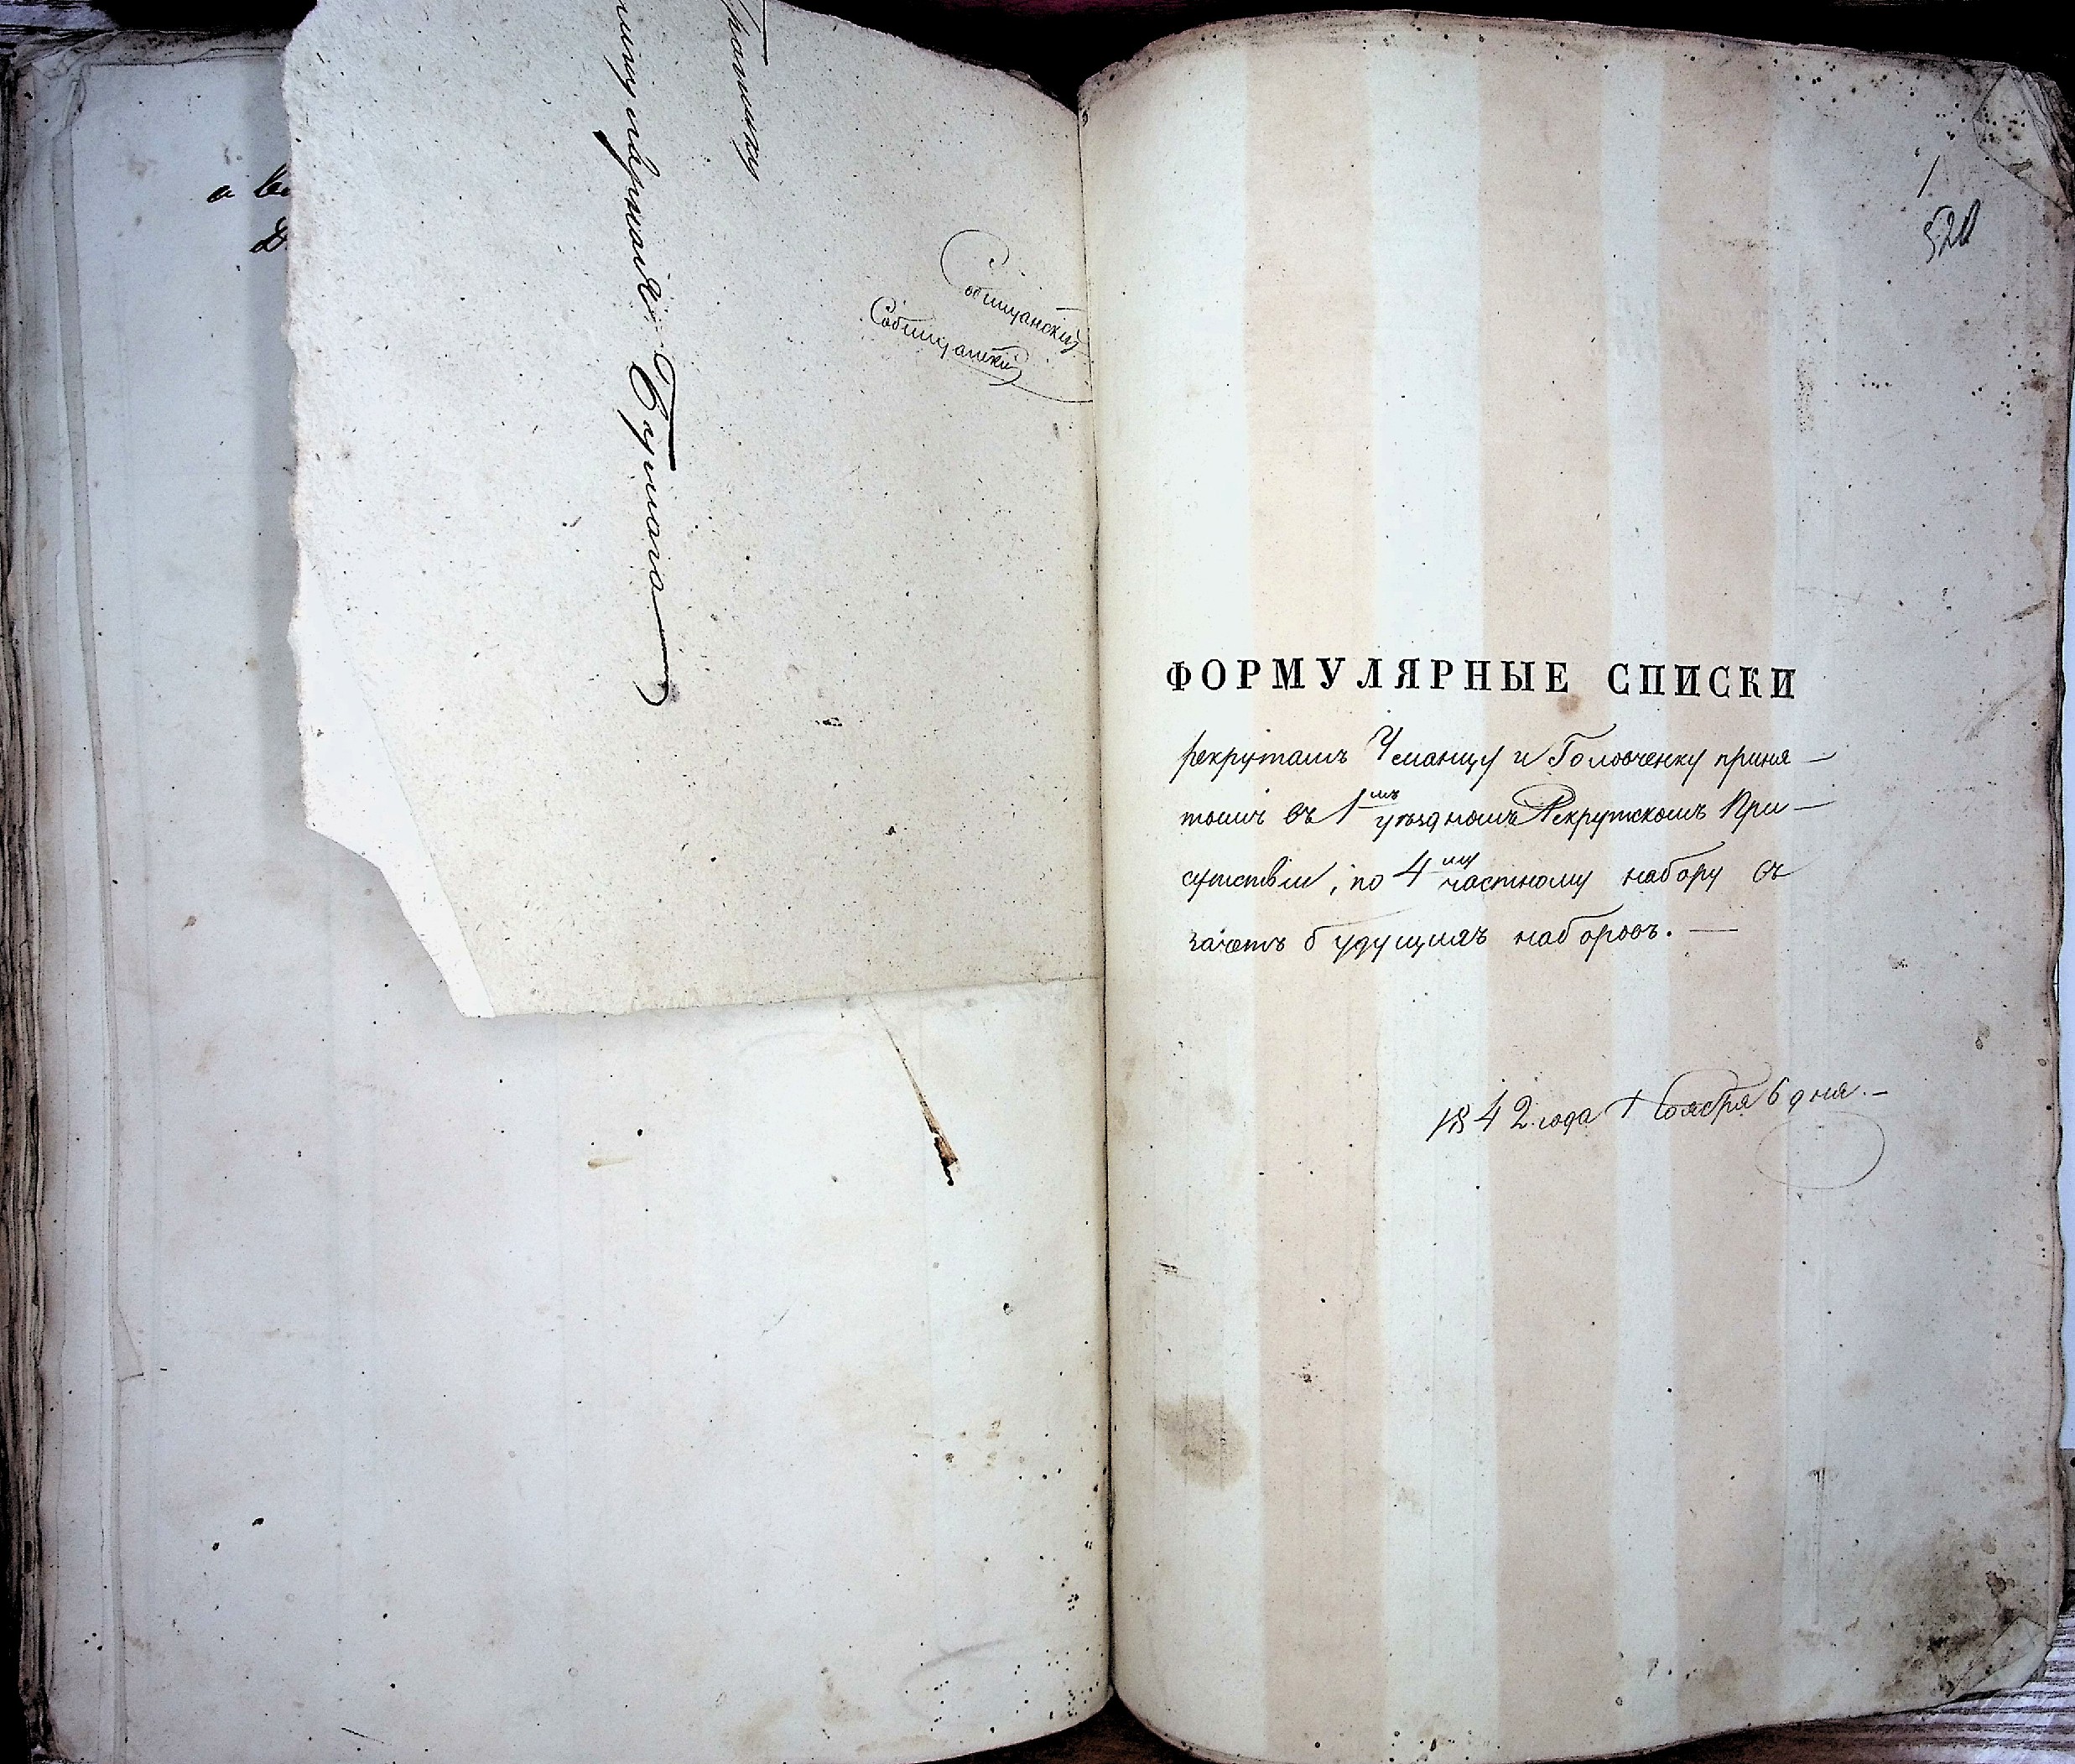 а
Собищанский
Собищанский
1
521
ФОРМУЛЯРНЫЕ СПИСКИ
рекрутамъ Уманцу и Головченку приня-
тымъ въ 1мъ уѣздномъ Рекрутскомъ При-
сутствіи, по 4му частному набору въ
зачетъ будущихъ наборовъ. —
1842 года Ноября 6 дня. —